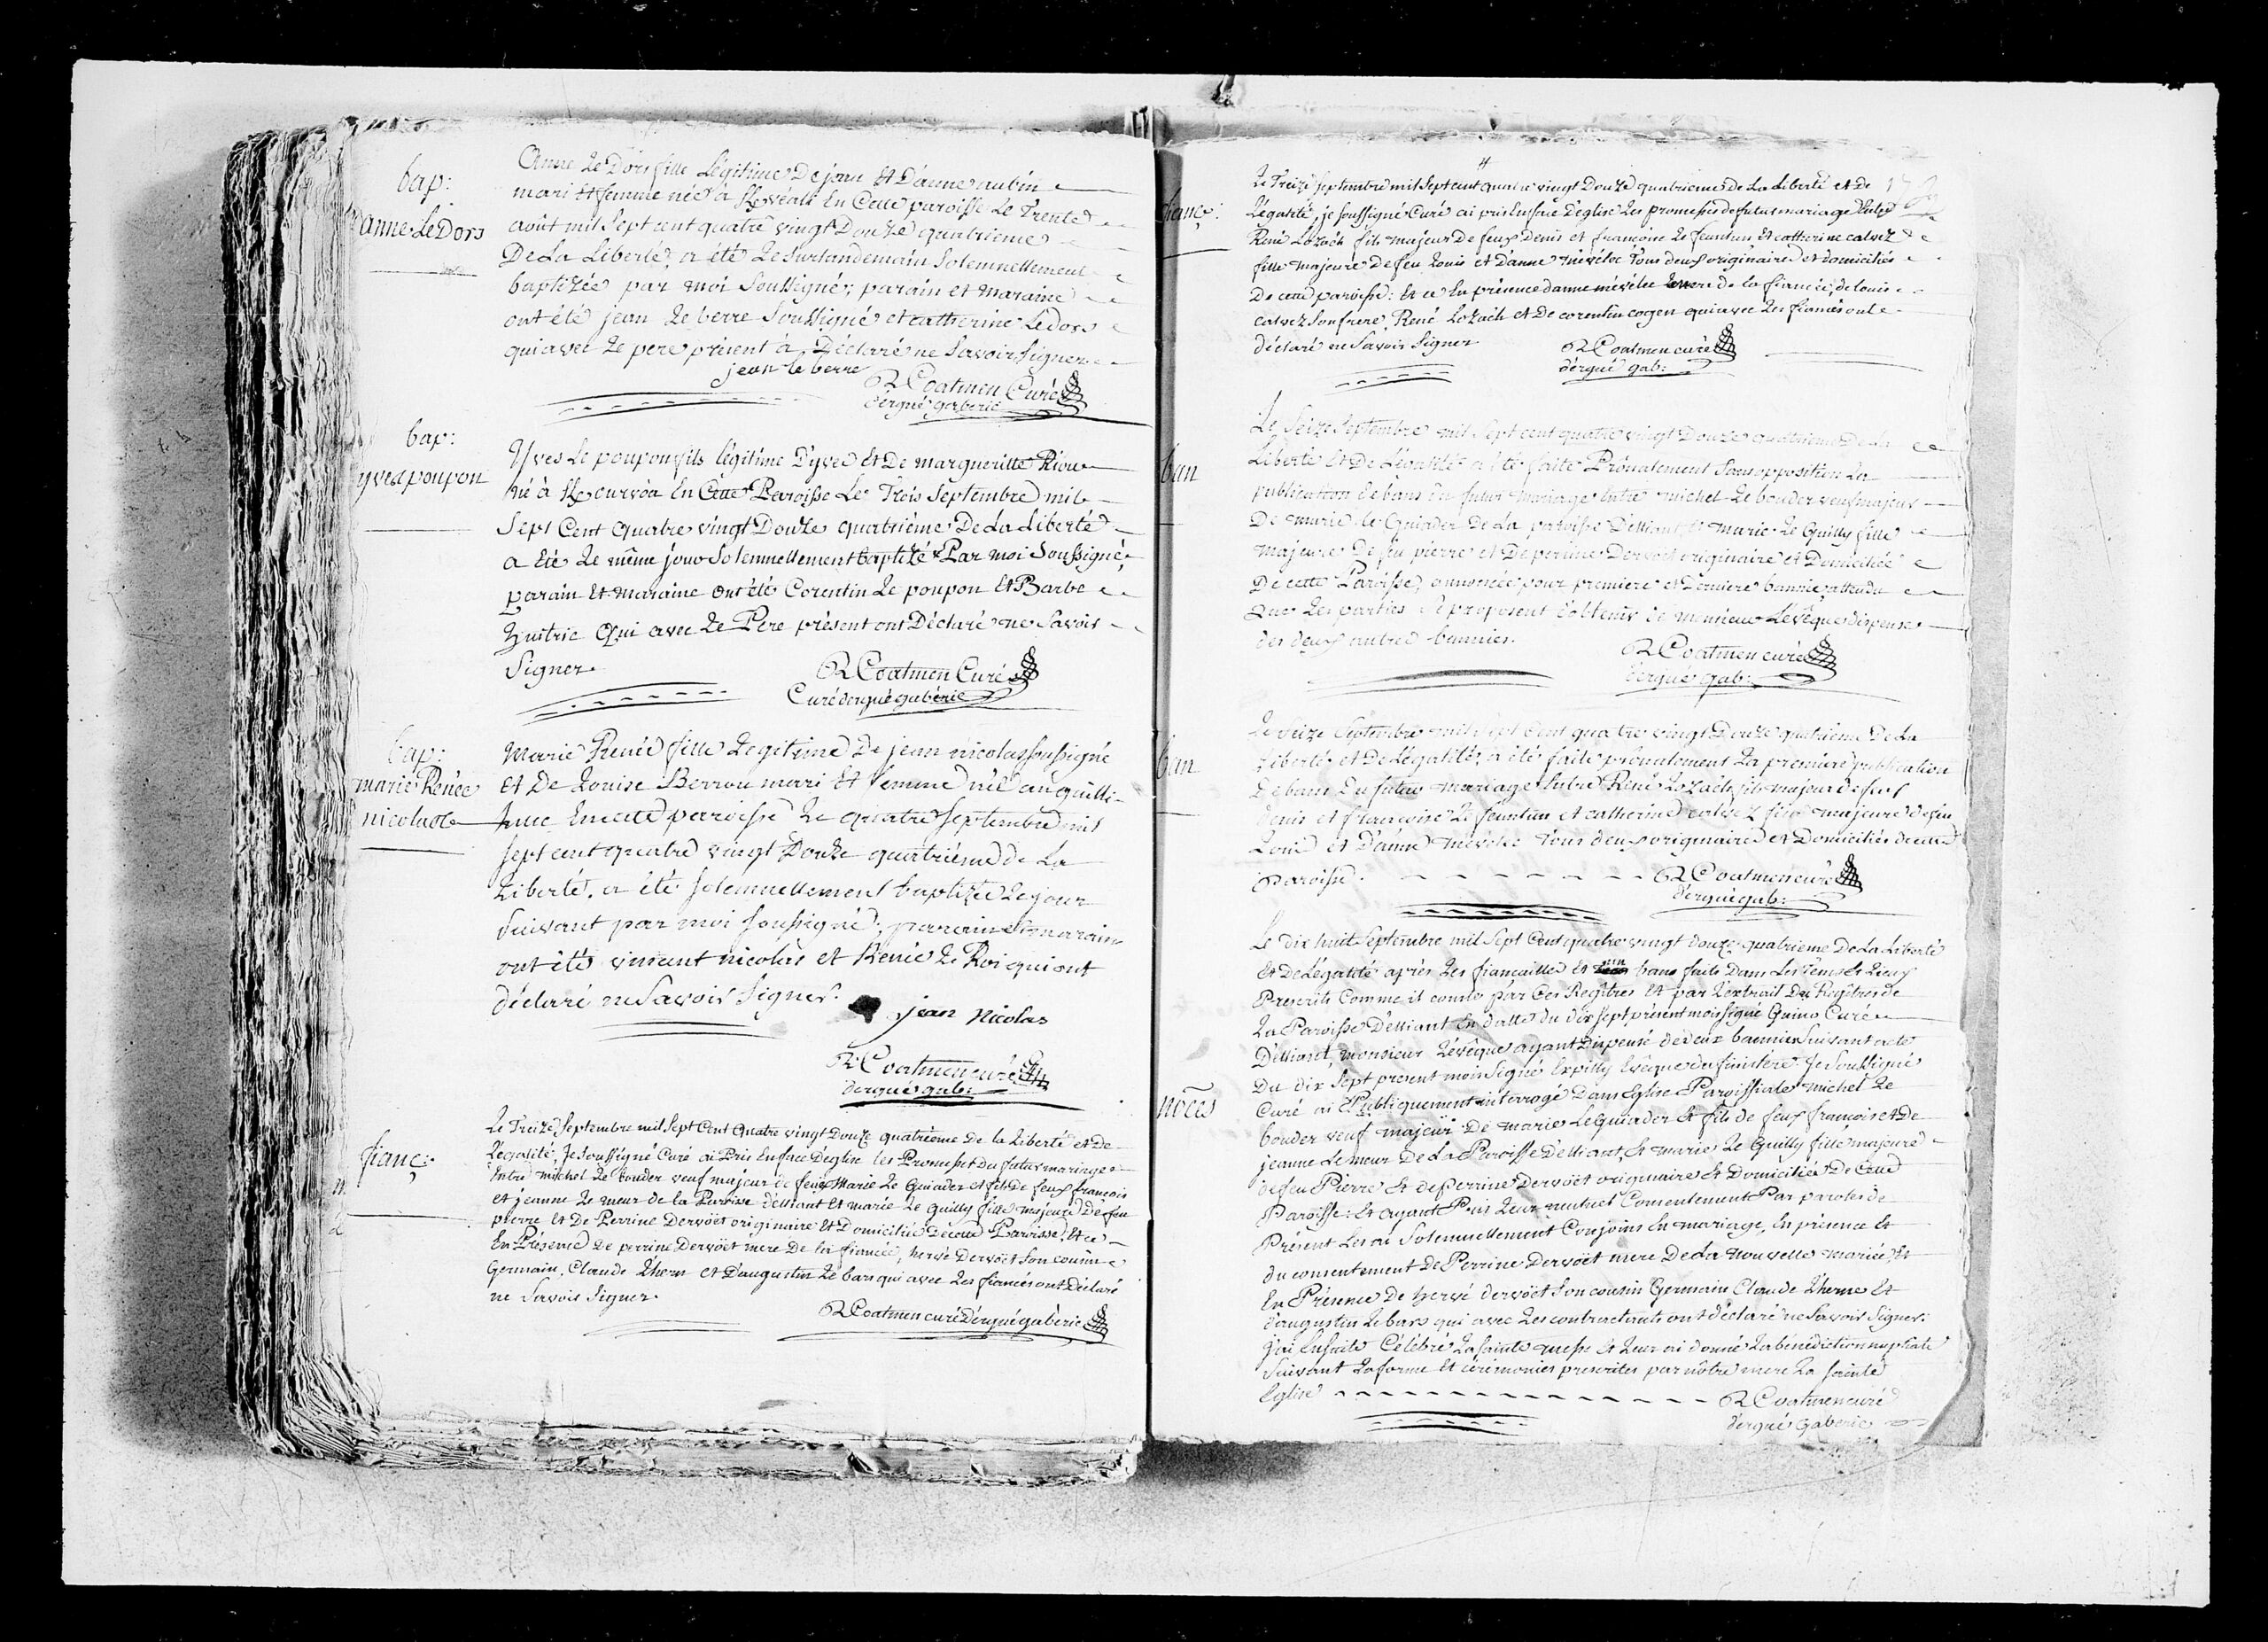 bap:
anne Le Dors
Anne Le Dors fille Légitime De jean Et D'anne aubin
mari Et femme née à En Cette paroisse Le Trente
août mil Sept cent quatre vingt Douze quatrieme
De La Liberté, a été Le Surlandemain Solemnellement
baptizée par moi Soussigné; parain et maraine
ont été jean Le berre Soussigné et catherine Le dors
qui avec Le pere présent a Déclaré ne Savoir signer
jean le berre
R Coatmen Curé
d'ergué gaberic
bap:
yves poupon
Yves Le poupon fils légitime D'yves Et De margueritte Riou
né à En Cette Paroisse Le Trois Septembre mil
Sept Cent quatre vingt Douze quatrième De La Liberté
a été Le même jour Solemnellement baptizé Par moi Soussigné,
parain Et maraine ont été Corentin Le poupon Et Barbe
Qui avec Le Pere présent ont Déclaré ne Savoir
Signer
R Coatmen Curé
Curé d'ergué gabéric
bap:
marie Renée
nicolas
Marie Renée fille Legitime De jean nicolas soussigné
et De Louise Berrou mari Et femme née au quilli-
huec En cette paroisse Le quatre Septembre mil
sept cent quatre vingt Douze quatriéme de La
Liberté. a été solemnellement baptizée Le jour
suivant par moi soussigné; parain et maraine
ont été vincent nicolas et Renée Le Roi qui ont
déclaré ne Savoir signer.
jean Nicolas
R Coatmen curé
d'ergué gab:
fianç:
Le Treize Septembre mil Sept Cent Quatre vingt Douze quatrieme de la Liberté et De
Légalité, Je Soussigné Curé ai Pris En face D'eglise les Promesses Du futur mariage
Entre michel Le bouder veuf majeur de feue Marie Le Guiader et fils De feus francois
et jeanne Le meur de la Paroisse d'elliant Et marie Le Guilly fille majeure De feu
pierre et De Perrine Dervöet originaire Et Domiciliée De cette Paroisse, Et ce
En Présence De perrine Dervoet mere De la fiancée, hervé Dervoët Son cousin
Germain, Claude Lherm et D'augustin Le bars qui avec Les fiancés ont Déclaré
ne Savoir Signer.
R Coatmen curé D'ergué gabéric
4
fianç:
Le Treize Septembre mil Sept cent quatre vingt Douze quatrieme de La Liberté et De
Légalité, je soussigné Curé ai pris En face D'eglise Les promesses de futur mariage Entre
René Lozach fils majeur De feus Denis et francoise Le feunteun Et catherine calvez
fille majeure De feu Louis et D'anne mévélec Tous deux originaires et domiciliés
De cette paroisse: Et ce En présence d'anne mévélec mere de la fiancée, de louis
calvez Son frere, René Lozach et De corentin cogen qui avec Les fiancés ont
déclaré ne Savoir Signer
R Coatmen curé
d'ergué gab:
ban
Le Seize Septembre mil Sept cent quatre vingt Douze quatrieme De La
Liberté Et De Légalité a été faite Prônalement Sans opposition La
publication De bans Du futur mariage Entre michel Le bouder veuf majeur
De marie le Guiader De La paroisse D'elliant Et marie Le Guilly fille
majeure De feu pierre et De perrine Dervoet originaire et Domiciliée
De cette Paroisse, annoncée pour premiere et Derniere bannie, attendu
Que Les parties Se proposent d'obtenir de monsieur L'evêque dispense
des deux autres bannies.
R Coatmen curé
d'ergué gab:
ban
Le Seize Septembre mil Sept Cent quatre vingt Douze quatrieme De La
Liberté et De Légalité, a été faite prônalement La premiere publication
De bans Du futur mariage Entre René Lozach fils majeur De feus
Denis et francoise Le feunteun et catherine calvez fille majeure De feu
Louis et D'anne mévélec Tous deux originaires et Domiciliés de cette
paroisse.
R Coatmen curé
d'ergué gab:
nôces
Le dix huit Septembre mil Sept Cent quatre vingt douze quatrieme De La Liberté
Et De Légalité après Les fiancailles Et un ban faits Dans Les Tems Et Lieux
Prescrits Comme il conste par Ces Regîtres Et par L'extrait Du Regître de
La Paroisse D'elliant En datte du dix sept présent mois signé Guino Curé
D'elliant, monsieur L'évêque ayant Dispensé de deux bannies Suivant acte
Du dix Sept present mois Signé Expilly Evêque du finistere. Je Soussigné
Curé ai Publiquement intérrogé Dans L'eglise Paroissiale michel Le
bouder veuf majeur De marie Le Guiader Et fils de feus francois et De
jeanne Le meur De La Paroisse D'elliant, Et marie Le Guilly fille majeure
De feu Pierre Et De Perrine Dervöet originaire Et Domiciliée De Cette
Paroisse: Et ayant Pris Leur mutuel Consentement Par paroles de
Présent Les ai Solemnellement Conjoins En mariage, En présence Et
du consentement De Perrine Dervöet mere De La nouvelle mariée, Et
En Présence De hervé dervöet son cousin Germain Claude Lherm Et
d'augustin Le bars qui avec Les contractants ont déclaré ne Savoir Signer:
j'ai Ensuite Célébré La Sainte messe Et Leur ai donné La bénédiction nuptiale
Suivant La forme Et cérémonies prescrites par nôtre mere La sainte
Eglise
R Coatmen curé
d'ergué Gaberic